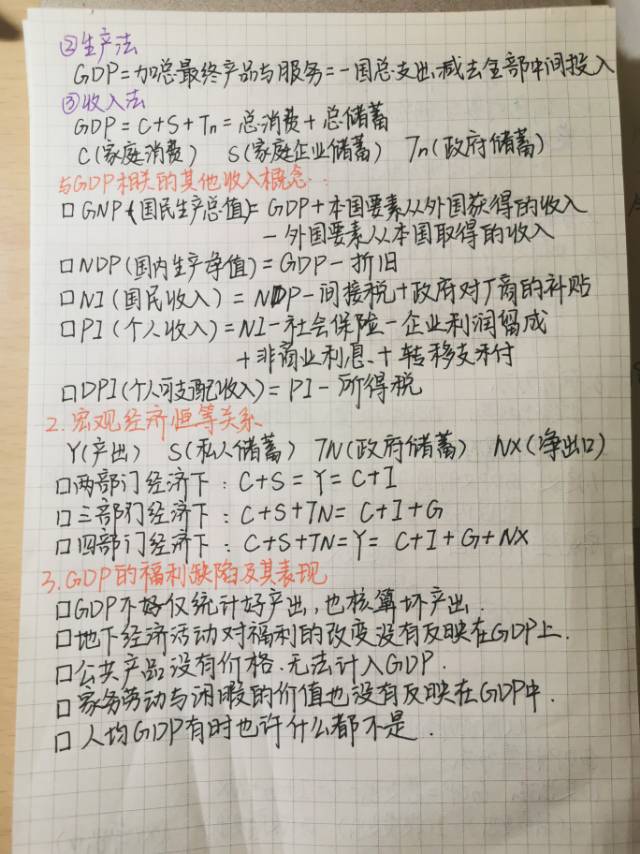 ②生产法
GDP=加总最终产品与服务=一国总支出减去全部中间投入
③收入法
GDP = C+S+Tn = 总消费+总储蓄
C(家庭消费) S(家庭企业储蓄) Tn(政府储蓄)
与GDP相关的其他收入概念:
□ GNP(国民生产总值)= GDP+本国要素从外国获得的收入
-外国要素从本国取得的收入
□ NDP(国内生产净值)=GDP-折旧
□ NI(国民收入)=NDP-间接税+政府对厂商的补贴
□ PI(个人收入)=NI-社会保险-企业利润留成
+非商业利息+转移支付
□ DPI(个人可支配收入)=PI-所得税
2.宏观经济恒等关系
Y(产出) S(私人储蓄) TN(政府储蓄) NX(净出口)
□两部门经济下:C+S=Y=C+I
□三部门经济下:C+S+TN= C+I+G
□四部门经济下:C+S+TN=Y= C+I+G+NX
3.GDP的福利缺陷及其表现
□GDP不好仅统计好产出,也核算坏产出.
□地下经济活动对福利的改变没有反映在GDP上.
□公共产品没有价格.无法计入GDP.
□家务劳动与闲暇的价值也没有反映在GDP中.
□人均GDP有时也许什么都不是.